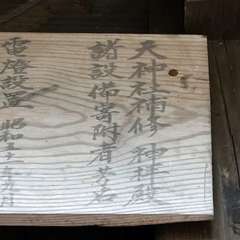 天神社補修 神拝殿
諸設備寄附者芳名
電燈設置 昭和三十年五月